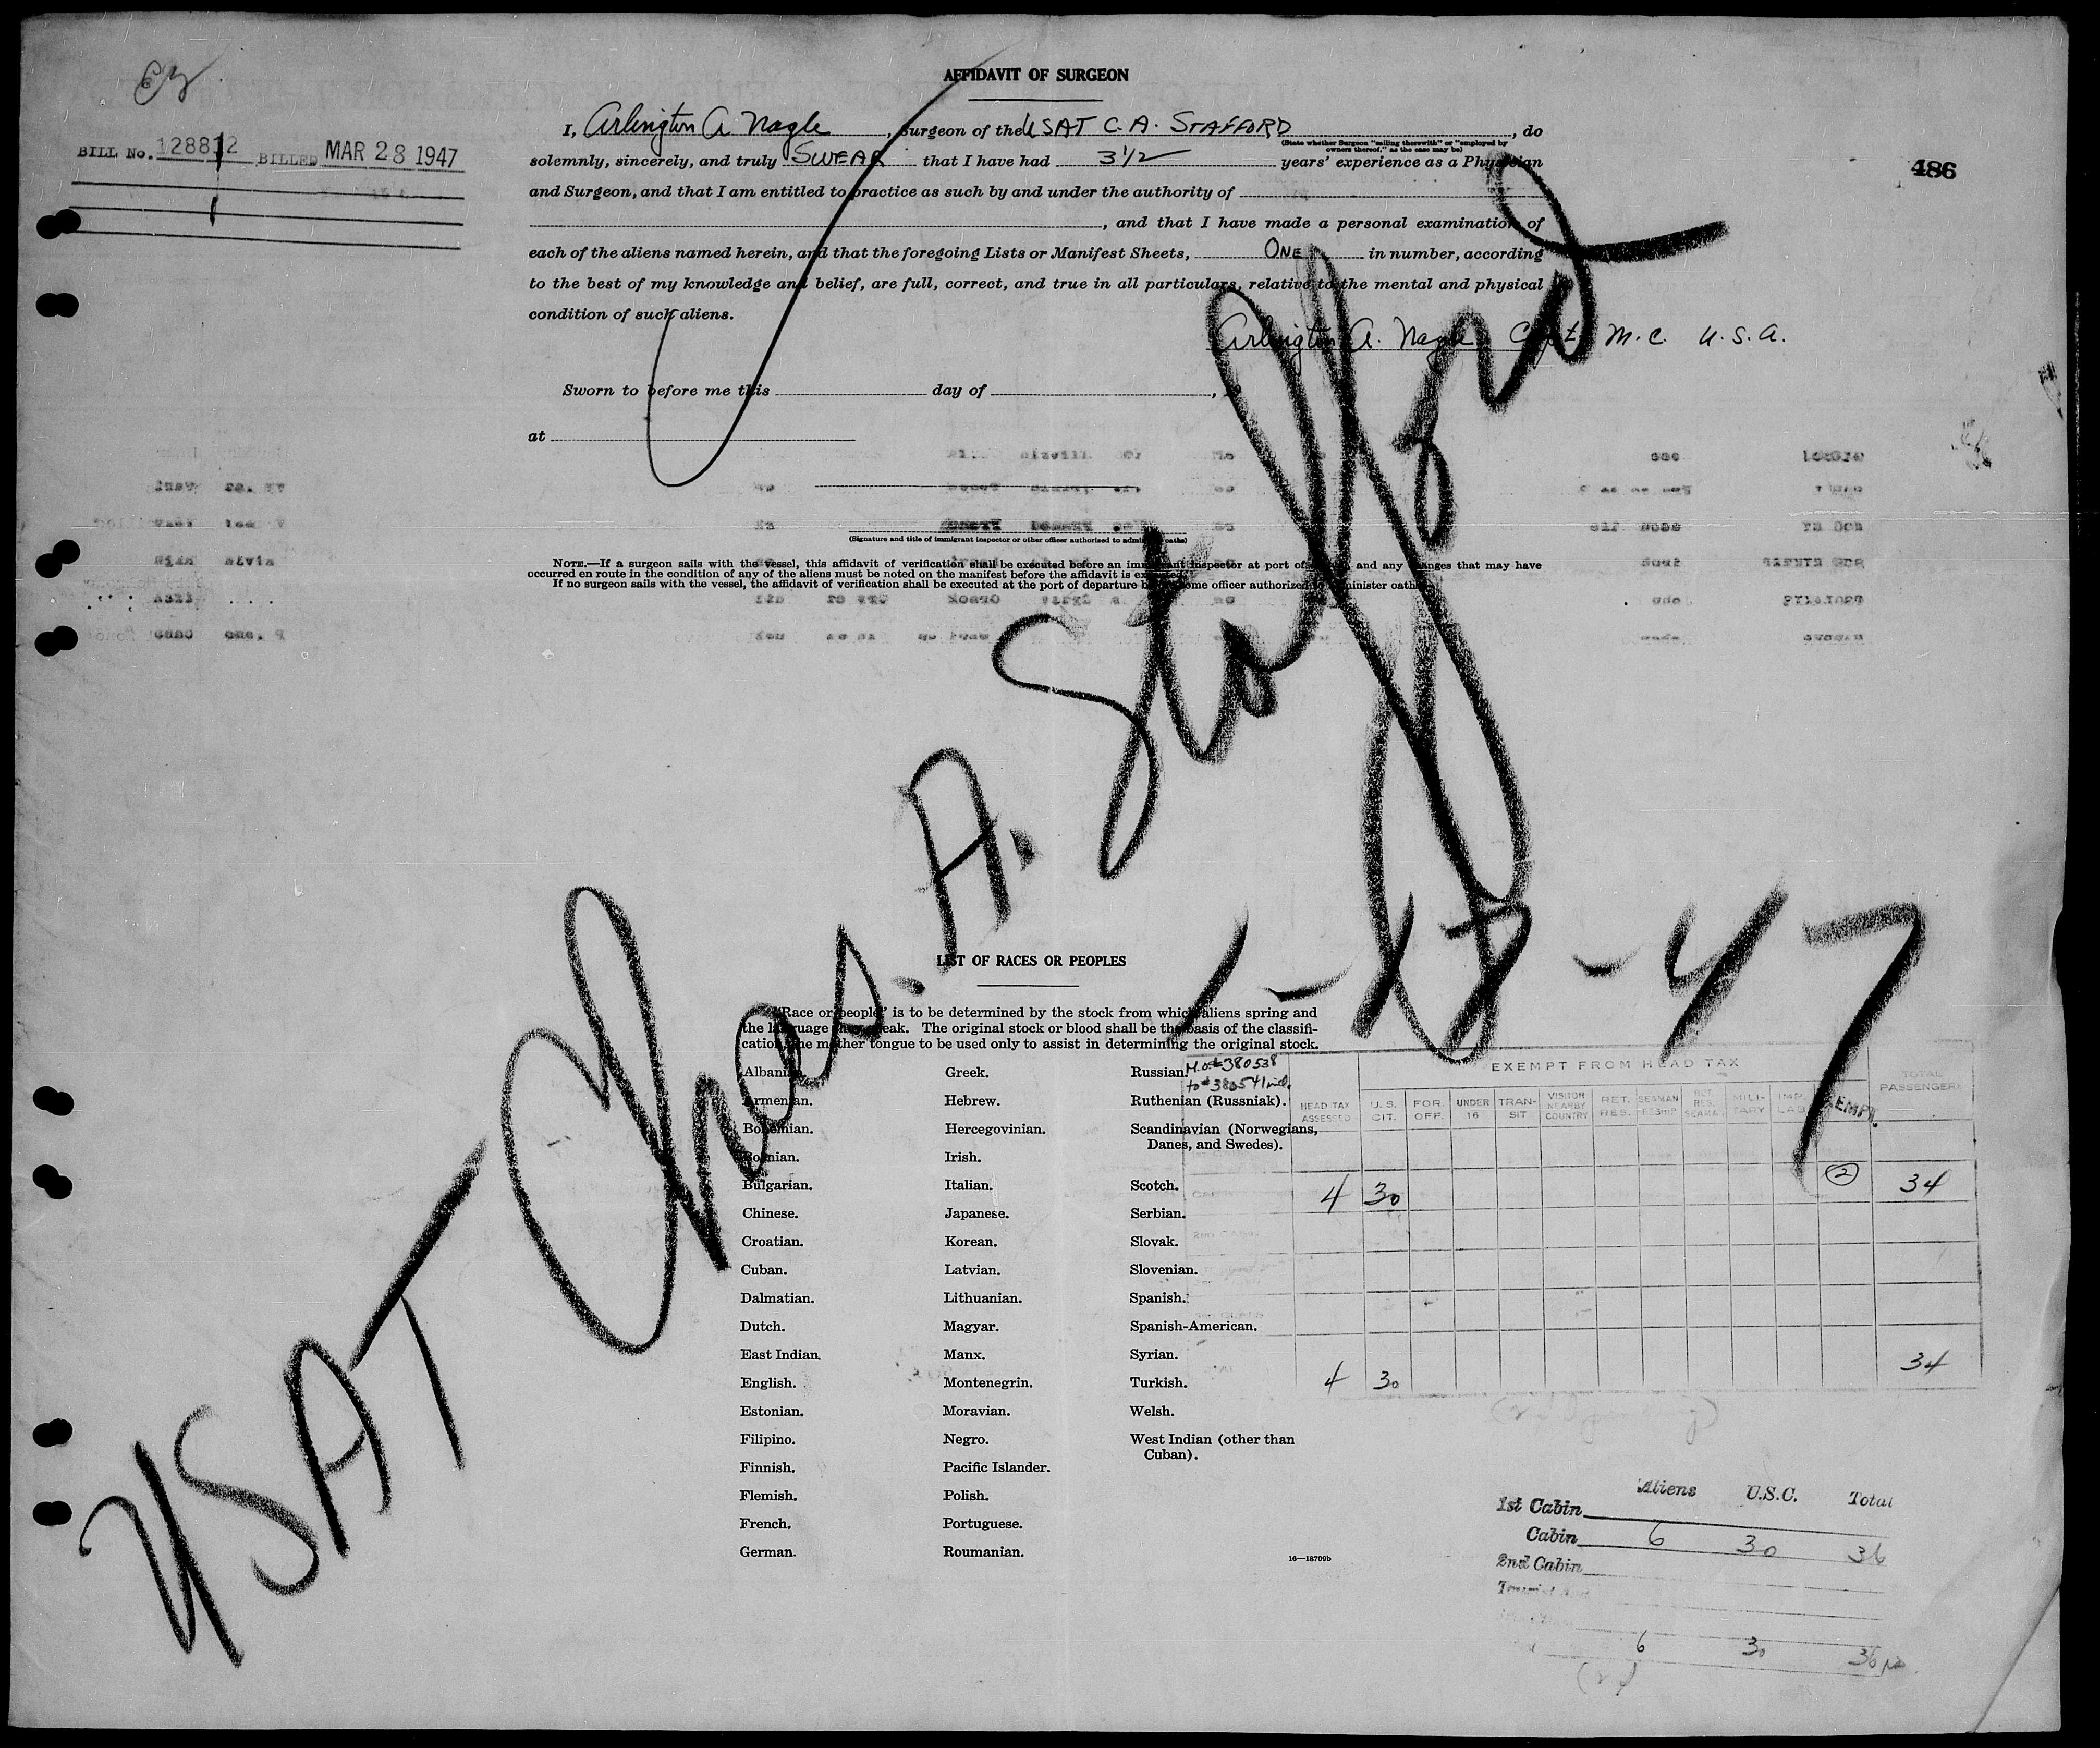 AFFIDAVIT OF SURGEON
BILL No. 128812 BILLED MAR 28 1947
486
I, Arlington A Nagle, Surgeon of the USAT C.A. STAFFORD, do
(State whether Surgeon "sailing therewith" or "employed by
owners thereof," as the case may be)
solemnly, sincerely, and truly SWEAR that I have had 3 1/2 years' experience as a Physician
and Surgeon, and that I am entitled to practice as such by and under the authority of
, and that I have made a personal examination of
each of the aliens named herein, and that the foregoing Lists or Manifest Sheets, ONE in number, according
to the best of my knowledge and belief, are full, correct, and true in all particulars, relative to the mental and physical
condition of such aliens.
Arlington A. Nagle Capt M.C. U.S.A.
Sworn to before me this day of ,
at
(Signature and title of immigrant inspector or other officer authorized to administer oaths)
NOTE.—If a surgeon sails with the vessel, this affidavit of verification shall be executed before an immigrant inspector at port of and any changes that may have
occurred en route in the condition of any of the aliens must be noted on the manifest before the affidavit is executed.
If no surgeon sails with the vessel, the affidavit of verification shall be executed at the port of departure before some officer authorized to administer oaths.
USAT Chas. A. Stafford
47
LIST OF RACES OR PEOPLES
"Race or people" is to be determined by the stock from which aliens spring and
the language they speak. The original stock or blood shall be the basis of the classifi-
cation, the mother tongue to be used only to assist in determining the original stock.
Albanian.
Armenian.
Bohemian.
Bosnian.
Bulgarian.
Chinese.
Croatian.
Cuban.
Dalmatian.
Dutch.
East Indian.
English.
Estonian.
Filipino.
Finnish.
Flemish.
French.
German.
Greek.
Hebrew.
Hercegovinian.
Irish.
Italian.
Japanese.
Korean.
Latvian.
Lithuanian.
Magyar.
Manx.
Montenegrin.
Moravian.
Negro.
Pacific Islander.
Polish.
Portuguese.
Roumanian.
Russian.
Ruthenian (Russniak).
Scandinavian (Norwegians,
Danes, and Swedes).
Scotch.
Serbian.
Slovak.
Slovenian.
Spanish.
Spanish-American.
Syrian.
Turkish.
Welsh.
West Indian (other than
Cuban).
16—18709b
#380538
to #380541 incl.
EXEMPT FROM HEAD TAX
HEAD TAX ASSESSED
U.S. CIT.
FOR. OFF.
UNDER 16
TRAN-SIT
VISITOR NEARBY COUNTRY
RET. RES.
SEAMAN
RET. RES. SEAMAN
MILI-TARY
TOTAL PASSENGERS
4 30 (2) 34
4 30 34
Aliens U.S.C. Total
1st Cabin
Cabin 6 30 36
2nd Cabin
6 30 36